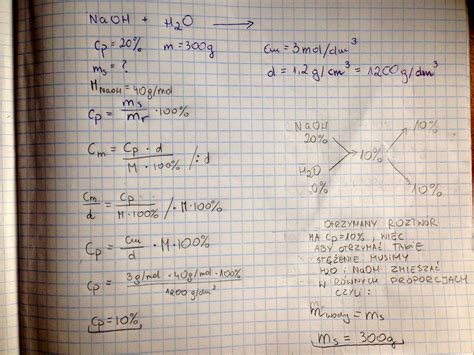 NaOH + H₂O ⟶
Cp = 20% m = 300g
ms = ?
M NaOH = 40g/mol
Cp = ms/mr · 100%
Cm = Cp · d / M · 100% /: d
Cm/d = Cp / M · 100% / · M · 100%
Cp = Cm/d · M · 100%
Cp = 3g/mol · 40g/mol · 100% / 1200 g/dm³
Cp = 10%
Cm = 3mol/dm³
d = 1,2 g/cm³ = 1200g/dm³
NaOH 10%
20%
10%
H₂O
0% 10%
OTRZYMANY ROZTWÓR
MA Cp=10%, WIĘC
ABY OTRZYMAĆ TAKIE
STĘŻENIE MUSIMY
H₂O i NaOH ZMIESZAĆ
W RÓWNYCH PROPORCJACH
CZYLI:
m wody = ms
ms = 300g